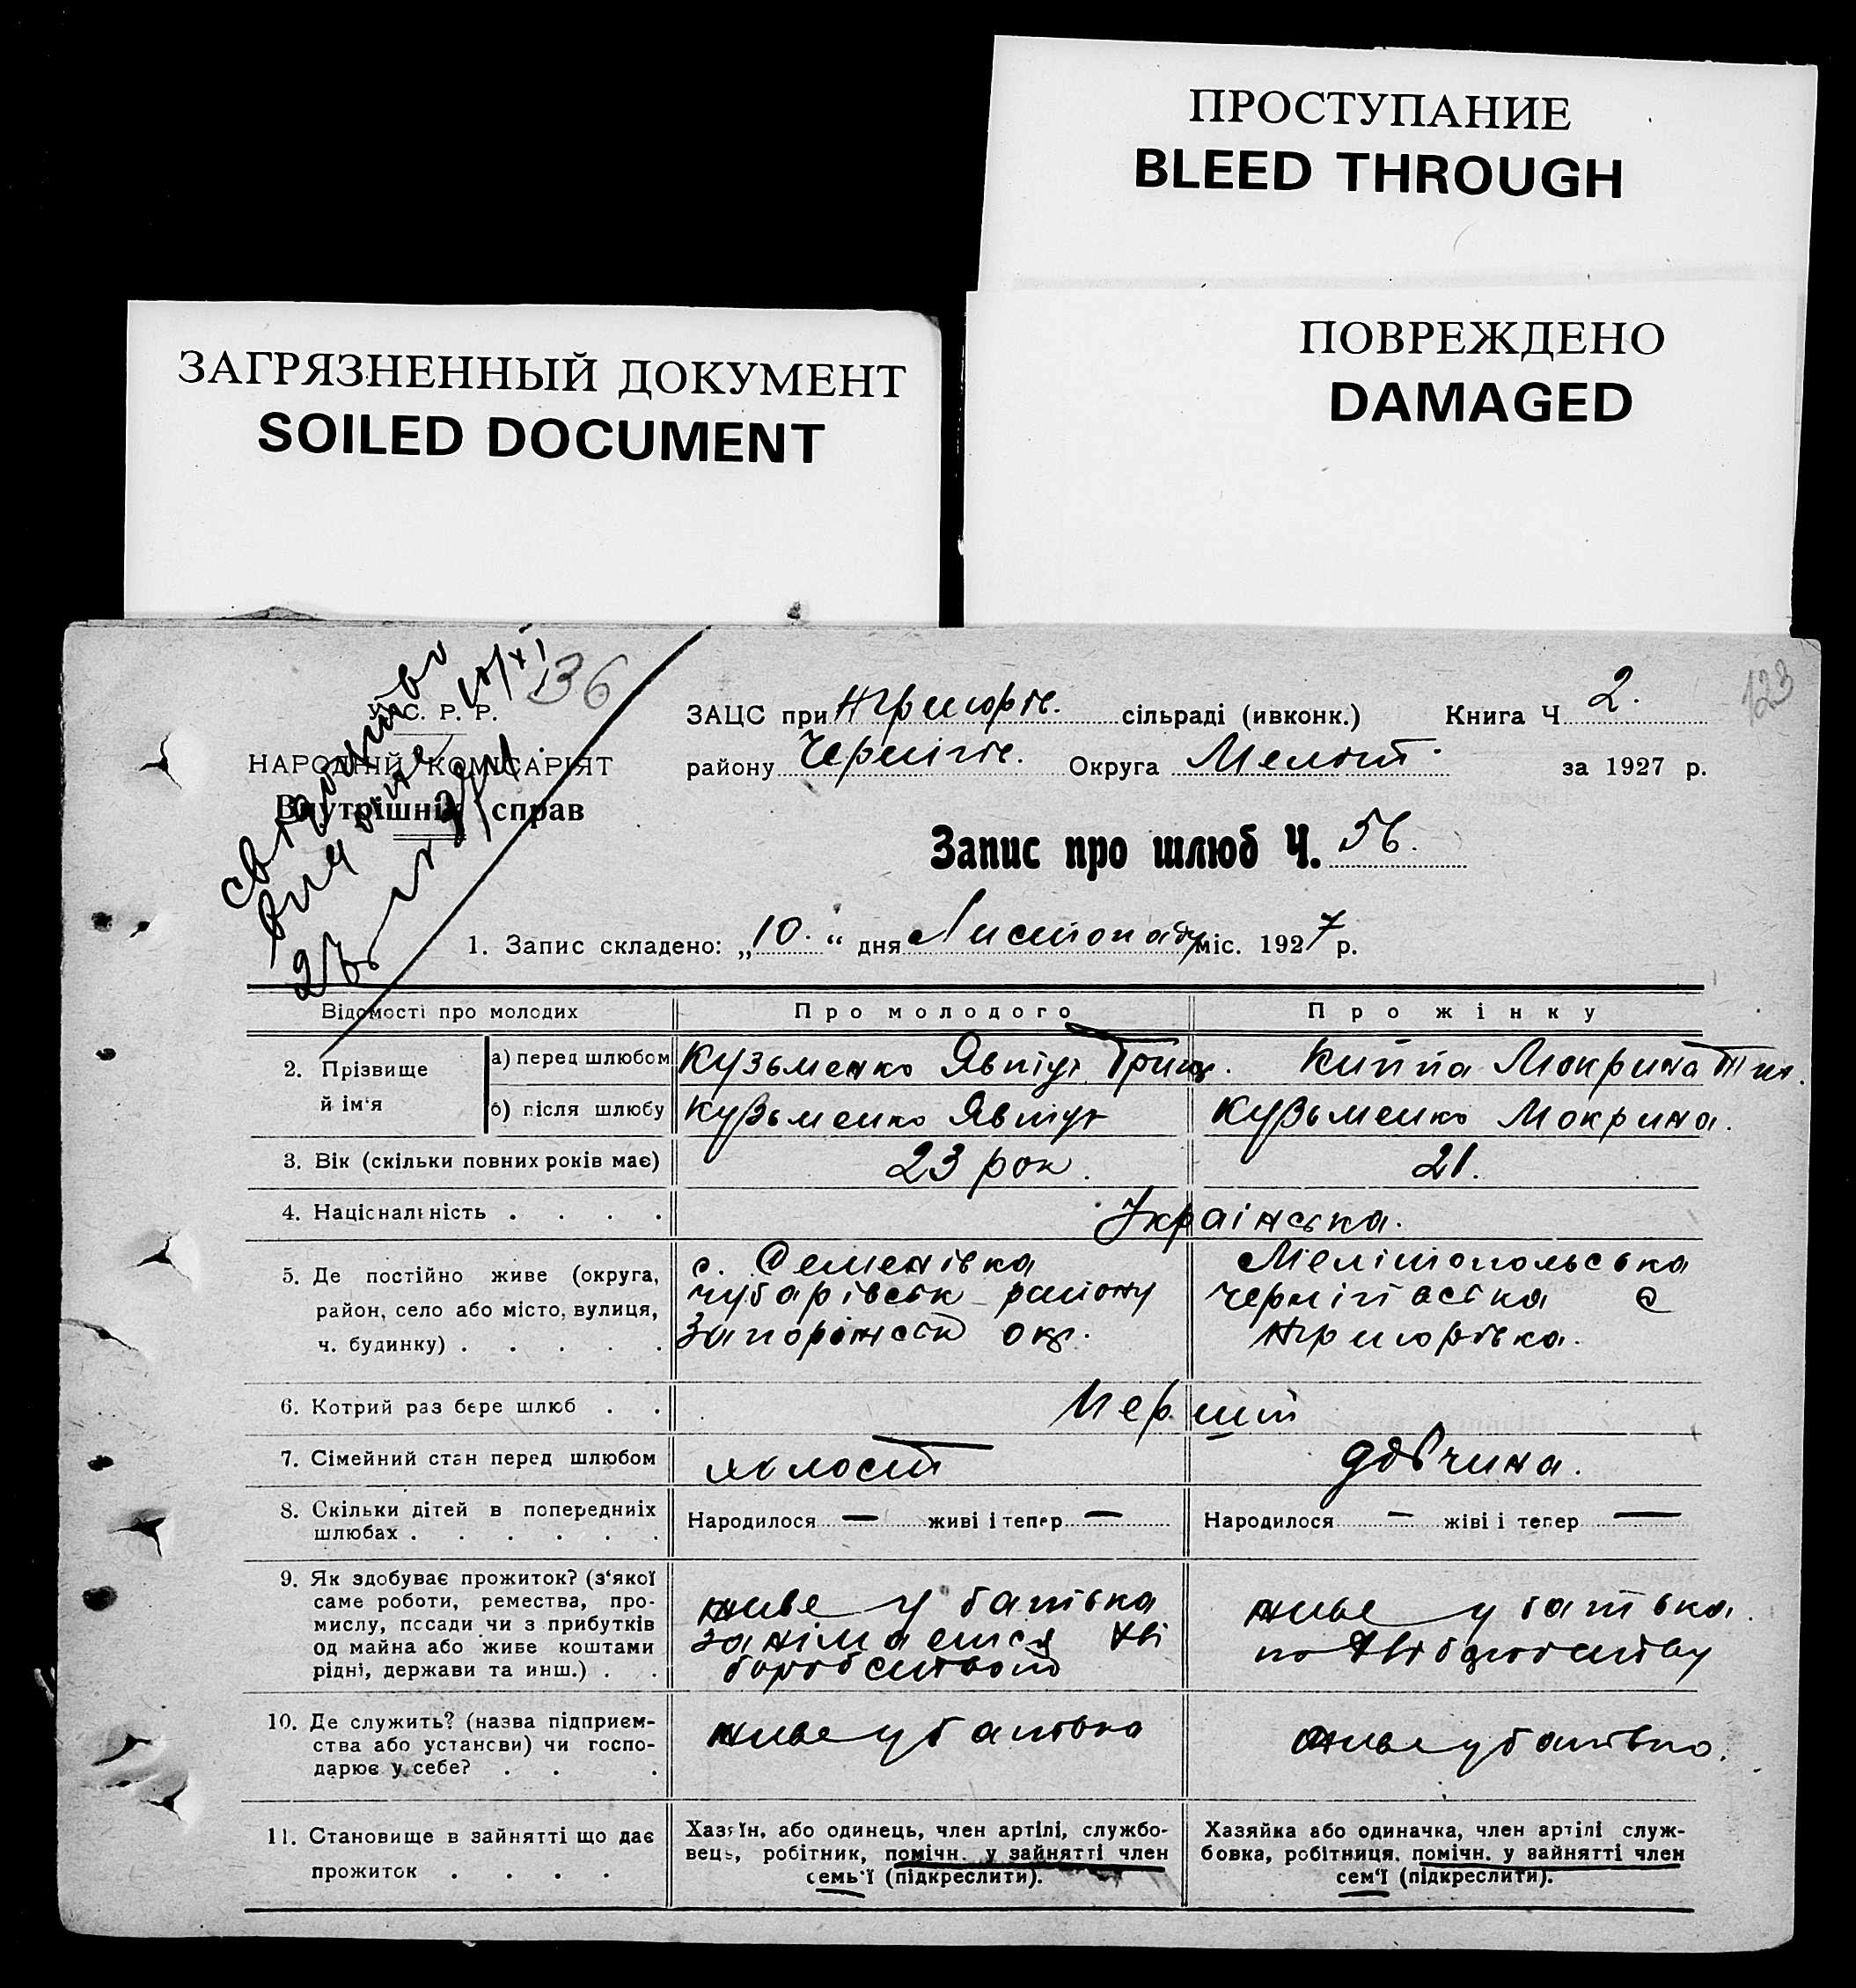 ПРОСТУПАНИЕ
BLEED THROUGH
ПОВРЕЖДЕНО
DAMAGED
ЗАГРЯЗНЕННЫЙ ДОКУМЕНТ
SOILED DOCUMENT
136
123
У. С. Р. Р.
НАРОДНІЙ КОМІСАРІЯТ
Внутрішніх справ
ЗАЦС при сільраді (ивконк.) Книга Ч 2.
району Чернігів. Округа Меліт. за 1927 р.
Запис про шлюб Ч. 56.
1. Запис складено: „10.“ дня Листопаду міс. 1927 р.
Відомості про молодих
Про молодого
Про жінку
2. Прізвище й ім'я
а) перед шлюбом
Кузьменко Явтух Гриц.
Киппа Мокрина
б) після шлюбу
Кузьменко Явтух
Кузьменко Мокрина.
3. Вік (скільки повних років має)
23 рок.
21.
4. Національність . . . .
Українська.
5. Де постійно живе (округа,
район, село або місто, вулиця,
ч. будинку) . . . . .
с. Семенівка
чубарівськ району
Запоріжськ окр.
Мелітопольська
с
6. Котрий раз бере шлюб . .
Перший
7. Сімейний стан перед шлюбом
дівчина.
8. Скільки дітей в попередниіх
шлюбах . . . . . .
Народилося — живі і тепер —
Народилося — жіві і тепер —
9. Як здобуває прожиток? (з'якої
саме роботи, ремества, про-
мислу, посади чи з прибутків
од майна або живе коштами
рідні, держави та инш.) . .
живе у батька
занімається хлі
боробством
живе у батька.
по хліборобству
10. Де служить? (назва підприєм-
ства або установи) чи госпо-
дарює у себе? . . .
живе у батька
живе у батька.
11. Становище в зайнятті що дає
прожиток . . . .
Хазяїн, або одинець, член артілі, службо-
вець, робітник, помічн. у зайнятті член
семь'ї (підкреслити).
Хазяйка або одиначка, член артілі служ-
бовка, робітниця, помічн. у зайнятті член
сем'ї (підкреслити).